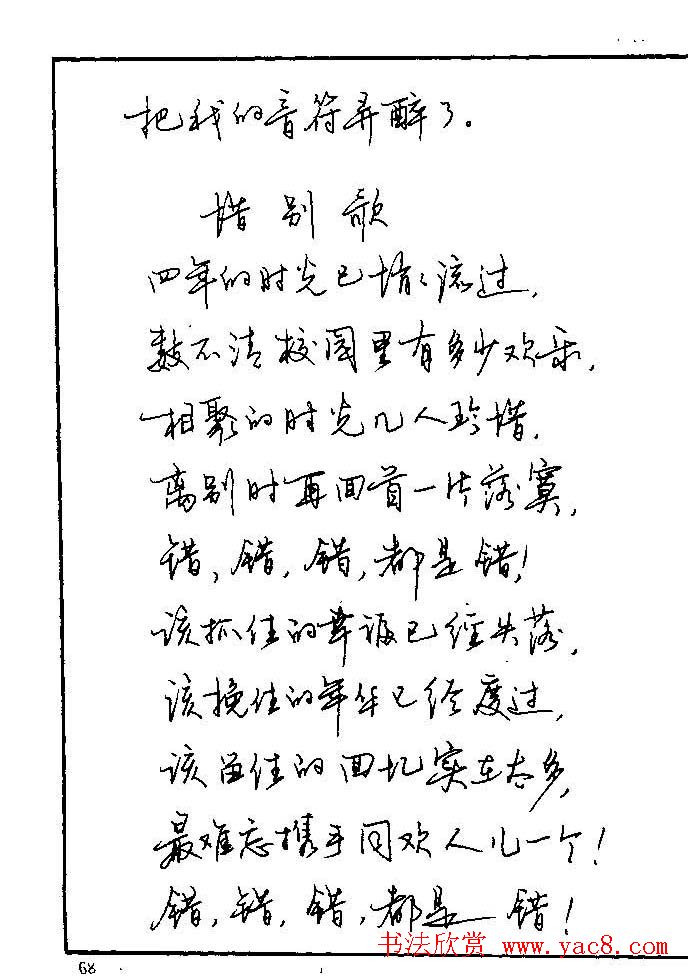 把我的音符弄醉了。
惜别歌
四年的时光已悄悄流过，
数不清校园里有多少欢乐，
相聚的时光几人珍惜，
离别时再回首一片落寞，
错，错，错，都是错！
该抓住的幸福已经失落，
该挽住的年华已经度过，
该留住的回忆实在太多，
最难忘携手同欢人儿一个！
错，错，错，都是错！
书法欣赏 www.yac8.com
68